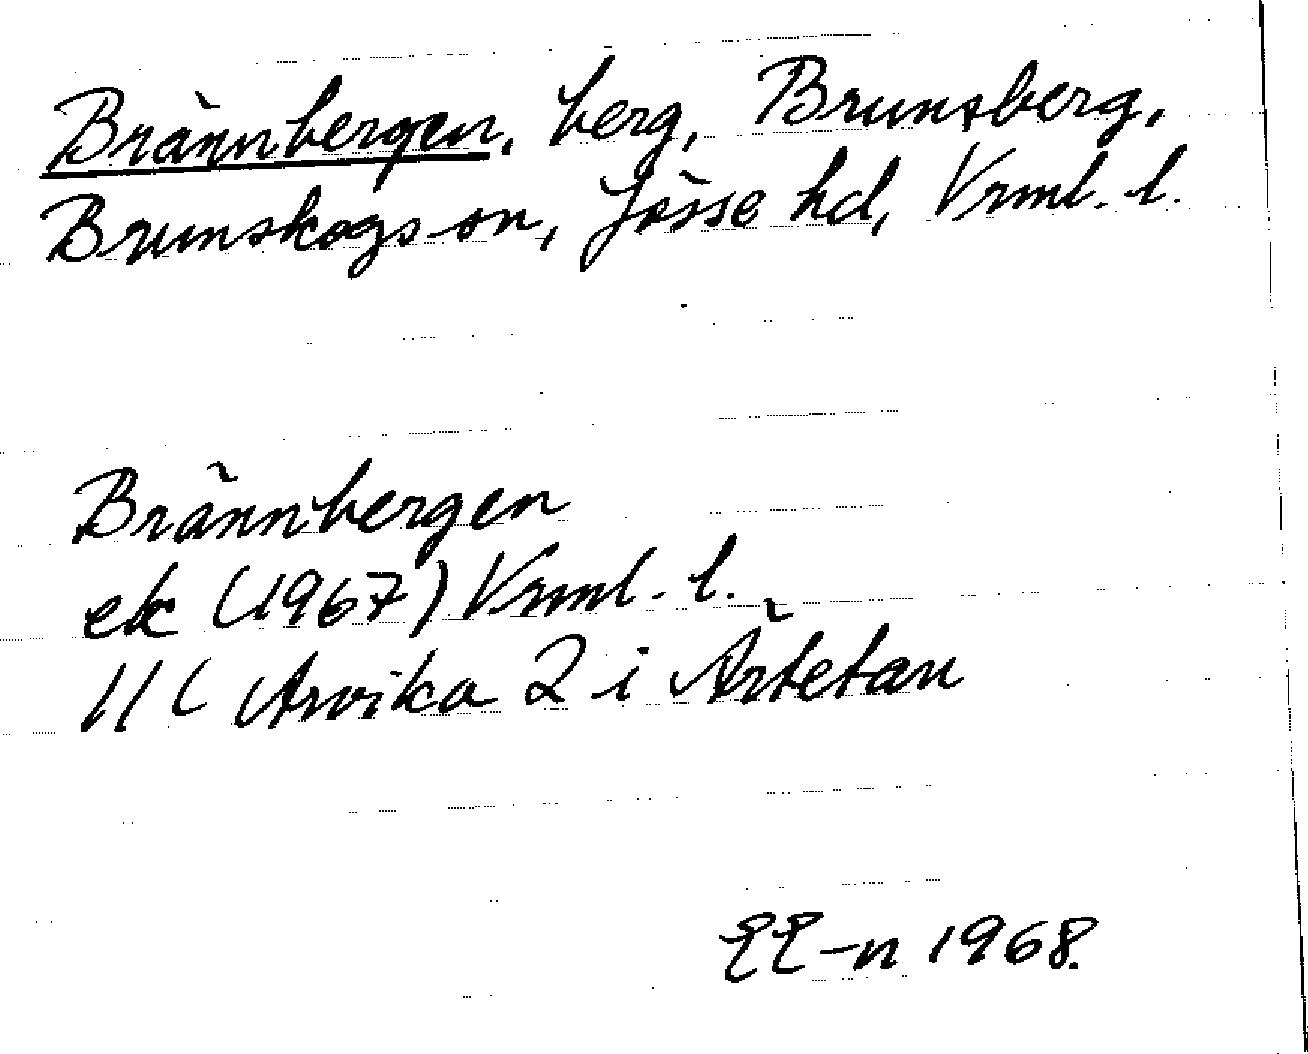 Brännbergen, berg, Brunsberg,
Brunskogs sn, Jösse hd, Vrml. l.
Brännbergen
ek (1967) Vrml. l.
11C Arvika 2 i Ärtetan
EE-n 1968.